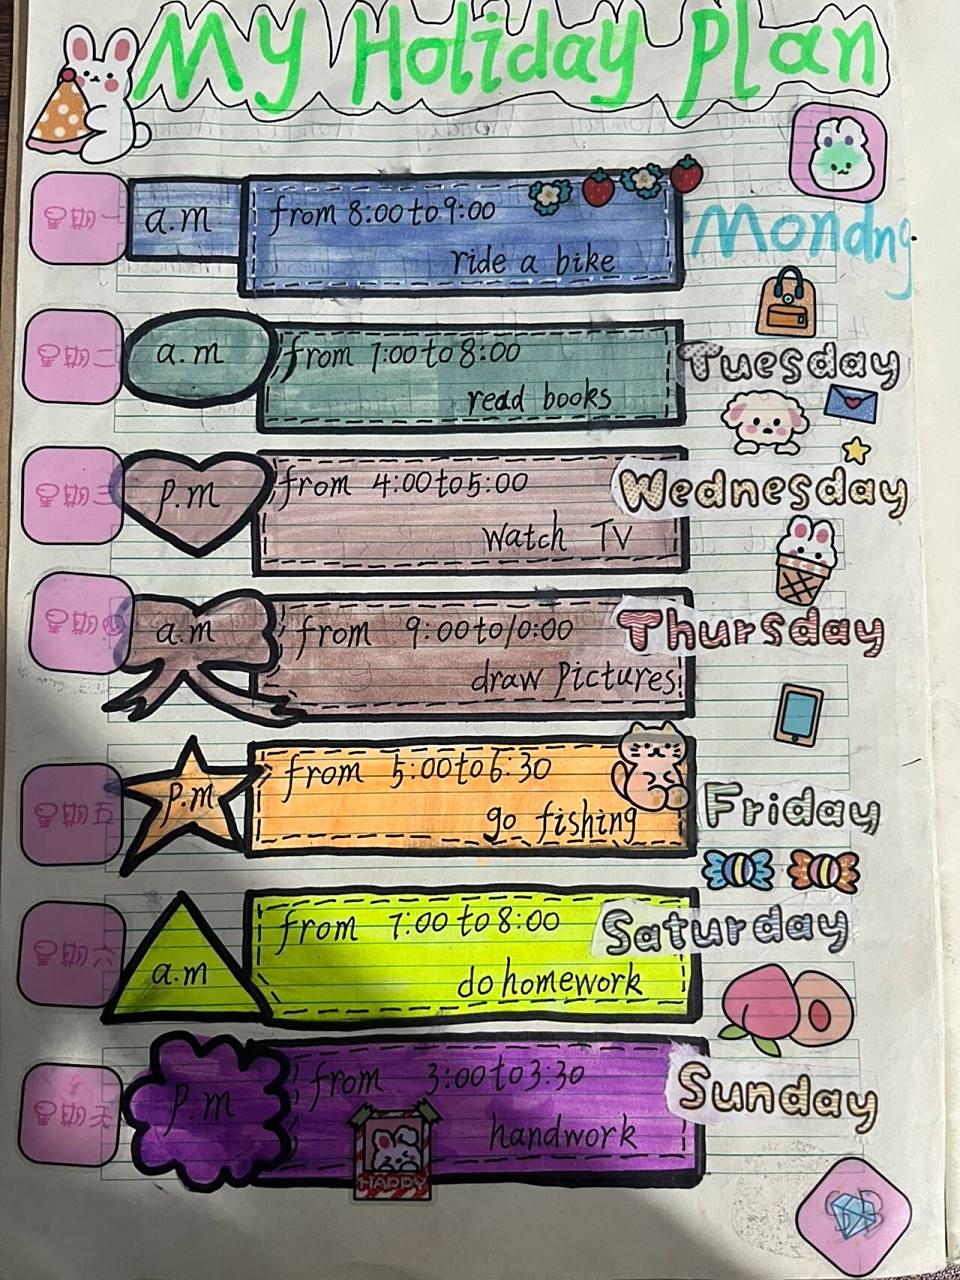 My Holiday Plan
星期一
a.m
from 8:00 to 9:00
ride a bike
Mondng
星期二
a.m
from 7:00 to 8:00
read books
Tuesday
星期三
p.m
from 4:00 to 5:00
watch TV
Wednesday
星期四
a.m
from 9:00 to 10:00
draw pictures
Thursday
星期五
p.m
from 5:00 to 6:30
go fishing
Friday
星期六
a.m
from 7:00 to 8:00
do homework
Saturday
星期天
p.m
from 3:00 to 3:30
handwork
HAPPY
Sunday